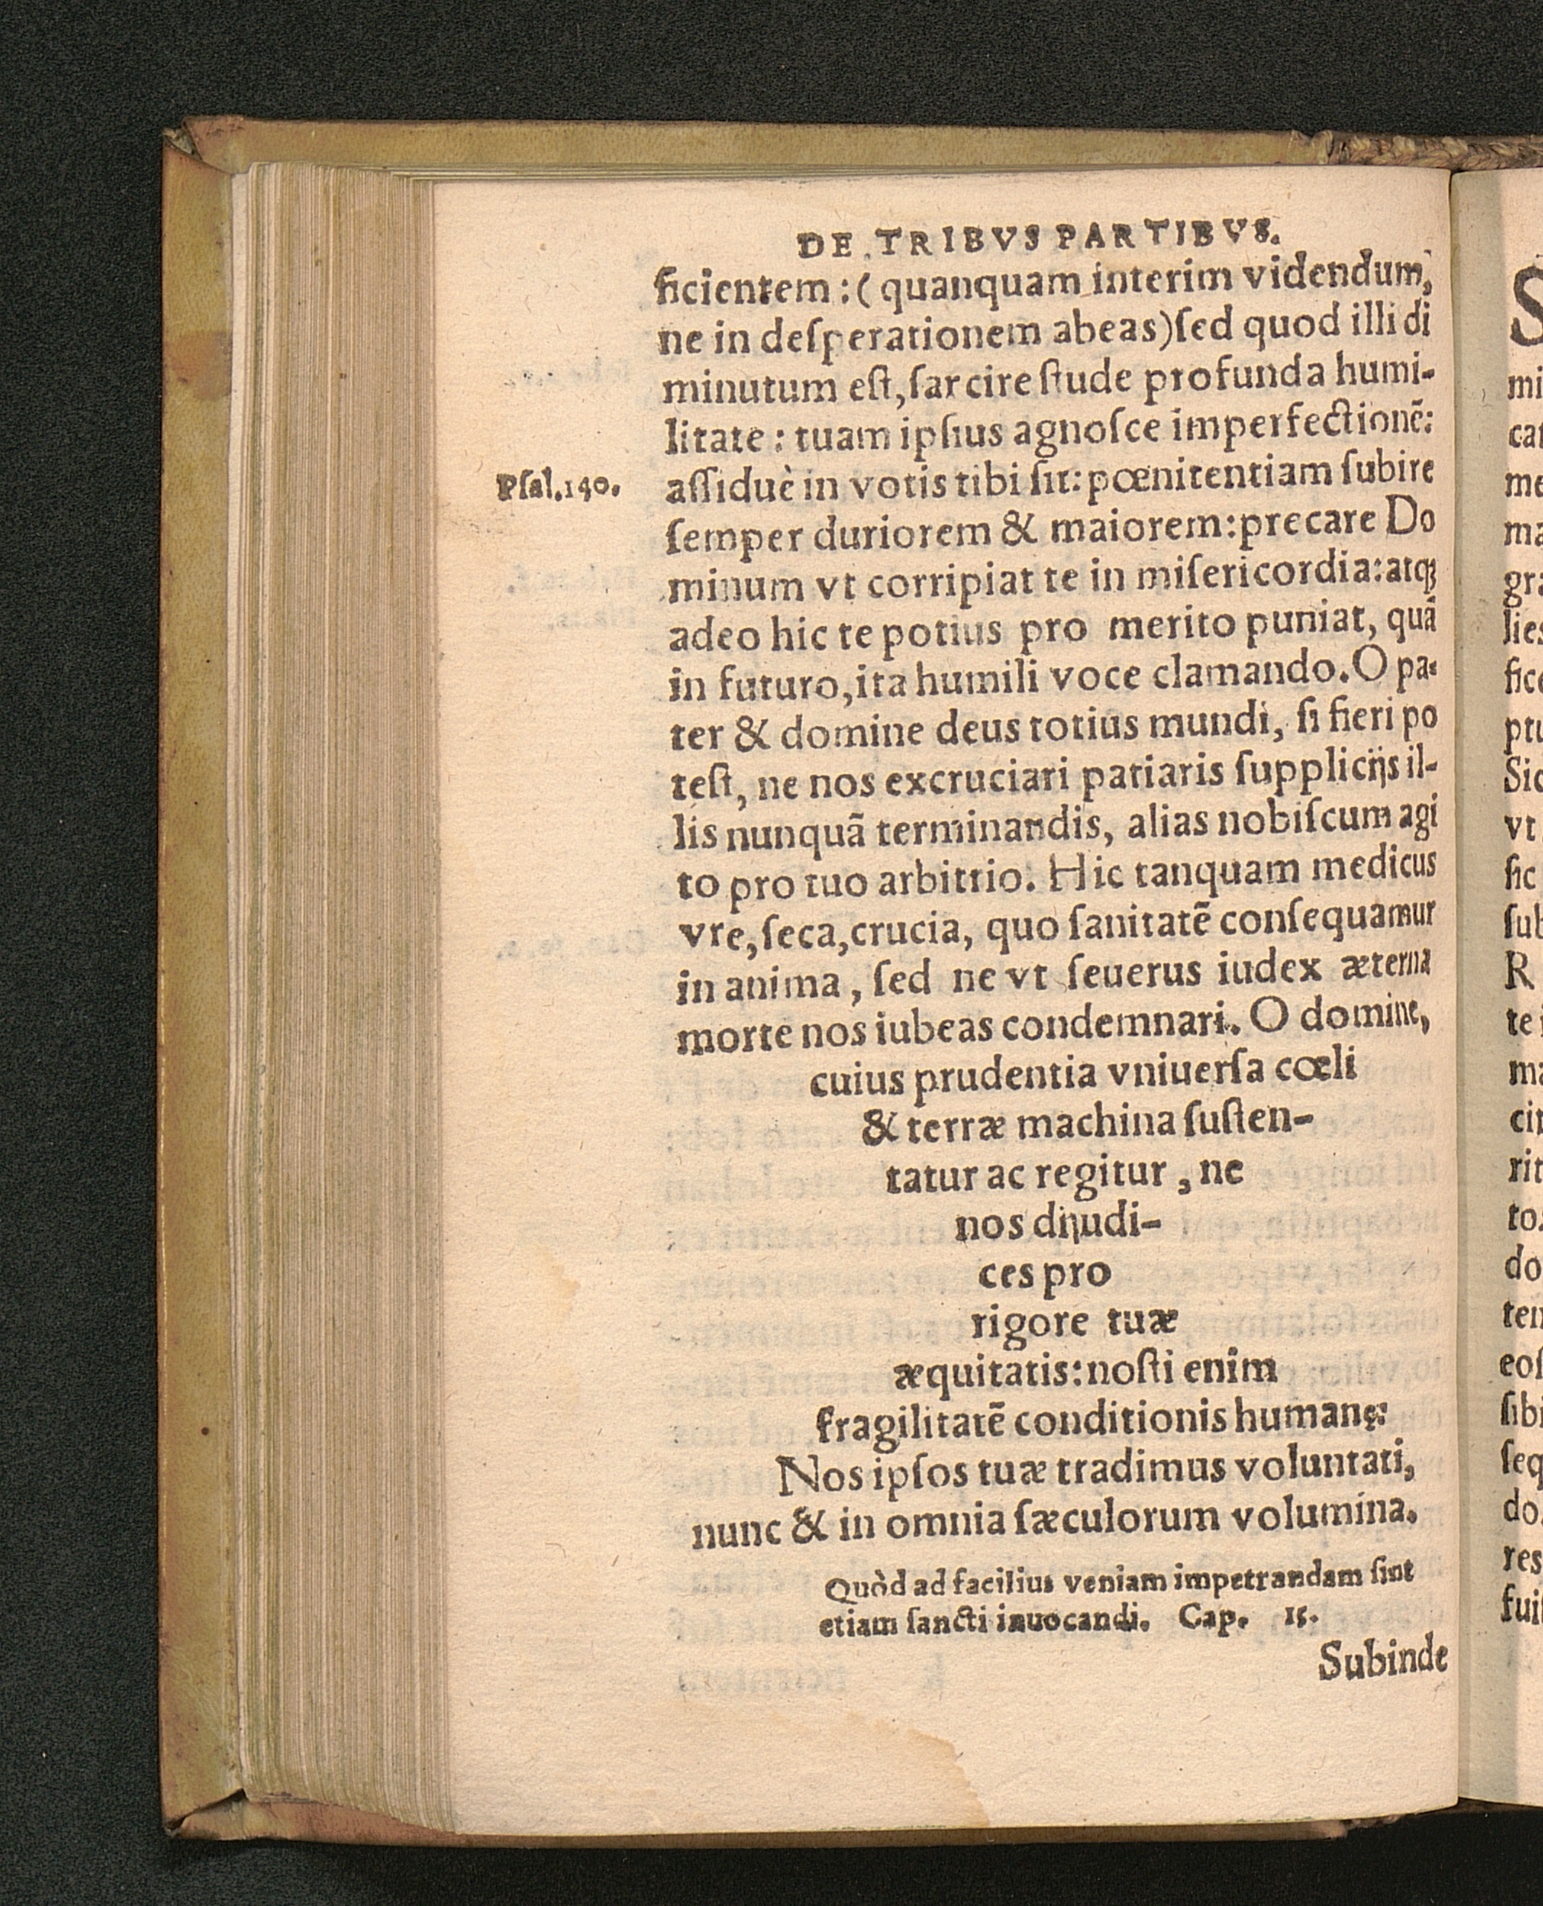 DE TRIBVS PARTIBVS.
ficientem:(quanquam interim videndum,
ne in deſperationem abeas)ſed quod illi di
minutum eſt,ſarcire ſtude profunda humi-
litate: tuam ipſius agnoſce imperfectionē:
Pſal.140.
aſſiduè in votis tibi ſit: pœnitentiam ſubire
ſemper duriorem & maiorem:precare Do
minum vt corripiat te in miſericordia: atq;
adeo hic te potius pro merito puniat, quā
in futuro,ita humili voce clamando. O pa-
ter & domine deus totius mundi, ſi fieri po
teſt, ne nos excruciari patiaris ſupplicijs il-
lis nunquā terminandis, alias nobiſcum agi
to pro tuo arbitrio. Hic tanquam medicus
vre,ſeca,crucia, quo ſanitatē conſequamur
in anima, ſed ne vt ſeuerus iudex æterna
morte nos iubeas condemnari. O domine,
cuius prudentia vniuerſa cœli
& terræ machina ſuſten-
tatur ac regitur, ne
nos dijudi-
ces pro
rigore tuæ
æquitatis:noſti enim
fragilitatē conditionis humanę:
Nos ipſos tuæ tradimus voluntati,
nunc & in omnia ſæculorum volumina.
Quòd ad facilius veniam impetrandam ſint
etiam ſancti inuocandi. Cap. 15.
Subinde
S
mi
cat
me
ma
gra
lies
fice
ptu
Sic
vt
ſic
ſub
R
te i
ma
cir
rit
to.
do
ten
eoſ
ſibi
ſeq
do.
res
fuit